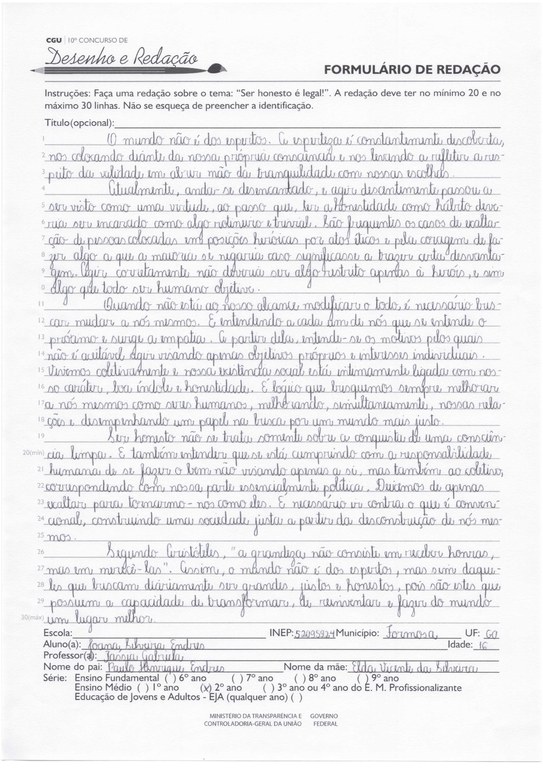 CGU | 10º CONCURSO DE
Desenho e Redação
FORMULÁRIO DE REDAÇÃO
Instruções: Faça uma redação sobre o tema: "Ser honesto é legal!". A redação deve ter no mínimo 20 e no
máximo 30 linhas. Não se esqueça de preencher a identificação.
Título(opcional):
1 O mundo não é dos espertos. A esperteza é constantemente descoberta,
2 nos colocando diante da nossa própria consciência e nos levando a refletir a res-
3 peito da validade em abrir mão da tranquilidade com nossas escolhas.
4 Atualmente, anda-se desencantado, e agir decentemente passou a
5 ser visto como uma virtude, ao passo que, ter a honestidade como hábito deve-
6 ria ser encarado como algo rotineiro e trivial. São frequentes os casos de exalta-
7 ção de pessoas colocadas em posições heróicas por atos éticos e pela coragem de fa-
8 zer algo a que a maioria se negaria caso significasse a trazer certa desvanta-
9 gem. Agir corretamente não deveria ser algo restrito apenas à heróis, e sim
0 algo que todo ser humano objetive.
11 Quando não está ao nosso alcance modificar o todo, é necessário bus-
12 car mudar a nós mesmos. E entendendo a cada um de nós que se entende o
13 próximo e surge a empatia. A partir dela, entende-se os motivos pelos quais
14 não é aceitável agir visando apenas objetivos próprios e interesses individuais.
15 Vivemos coletivamente e nossa existência social está intimamente ligada com nos-
16 so caráter, boa índole e honestidade. É lógico que busquemos sempre melhorar
17 a nós mesmos como seres humanos, melhorando, simultaneamente, nossas rela-
18 ções e desempenhando um papel na busca por um mundo mais justo.
19 Ser honesto não se trata somente sobre a conquista de uma consciên-
20(mín) cia limpa. É também entender que se está cumprindo com a responsabilidade
21 humana de se fazer o bem não visando apenas a si, mas também ao coletivo,
22 correspondendo com nossa parte essencialmente política. Deixemos de apenas
23 exaltar para tornarmo-nos como eles. É necessário ir contra o que é conven-
24 cional, construindo uma sociedade justa a partir da desconstrução de nós mes-
25 mos.
26 Segundo Aristóteles, "a grandeza não consiste em receber honras,
27 mas em merecê-las". Assim, o mundo não é dos espertos, mas sim daque-
28 les que buscam diariamente ser grandes, justos e honestos, pois são estes que
29 possuem a capacidade de transformar, de reinventar e fazer do mundo
30(máx) um lugar melhor.
Escola: INEP: 52095924 Município: Formosa UF: GO
Aluno(a): Joana Silveira Endres Idade: 16
Professor(a): Tássia Gabriela
Nome do pai: Paulo Henrique Endres Nome da mãe: Elda Vicente da Silveira
Série: Ensino Fundamental ( ) 6º ano ( ) 7º ano ( ) 8º ano ( ) 9º ano
Ensino Médio ( ) 1º ano (x) 2º ano ( ) 3º ano ou 4º ano do E. M. Profissionalizante
Educação de Jovens e Adultos - EJA (qualquer ano) ( )
MINISTÉRIO DA TRANSPARÊNCIA E GOVERNO
CONTROLADORIA-GERAL DA UNIÃO FEDERAL